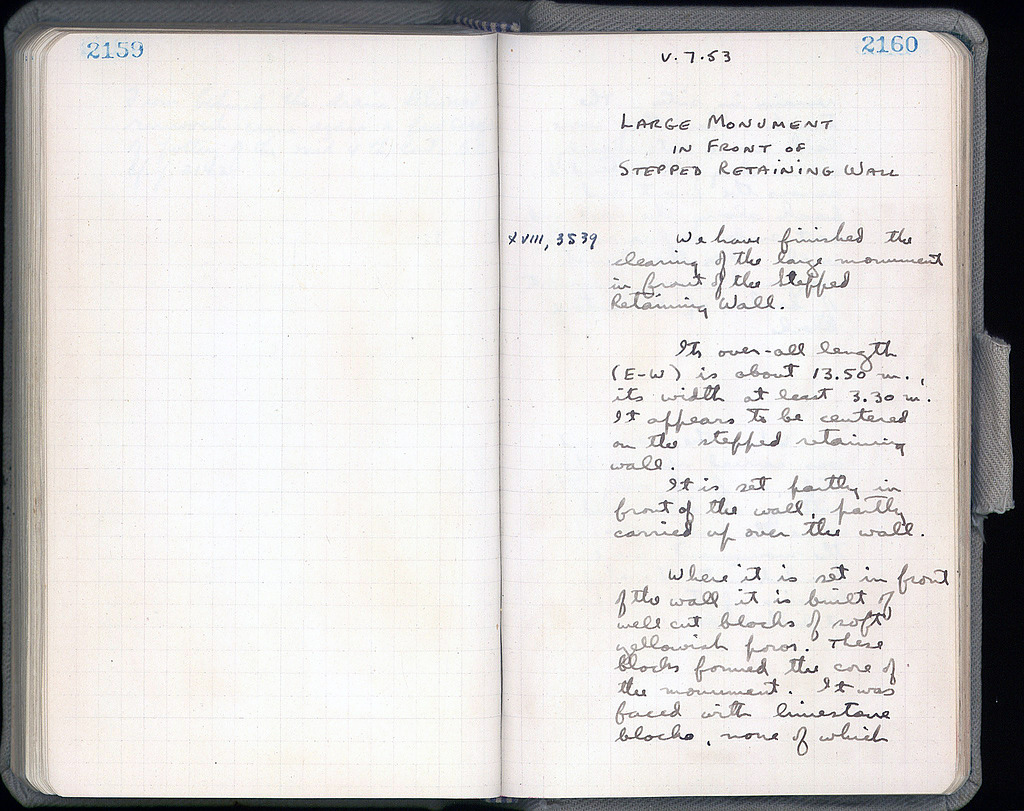 2159
2160
V.7.53
LARGE MONUMENT
IN FRONT OF
STEPPED RETAINING WALL
XVIII, 3539
We have finished the
clearing of the large monument
in front of the Stepped
Retaining Wall.
Its over-all length
(E-W) is about 13.50 m.,
its width at least 3.30 m.
It appears to be centered
on the stepped retaining
wall.
It is set partly in
front of the wall, partly
carried up over the wall.
Where it is set in front
of the wall it is built of
well cut blocks of soft
yellowish poros. These
blocks formed the core of
the monument. It was
faced with limestone
blocks, none of which